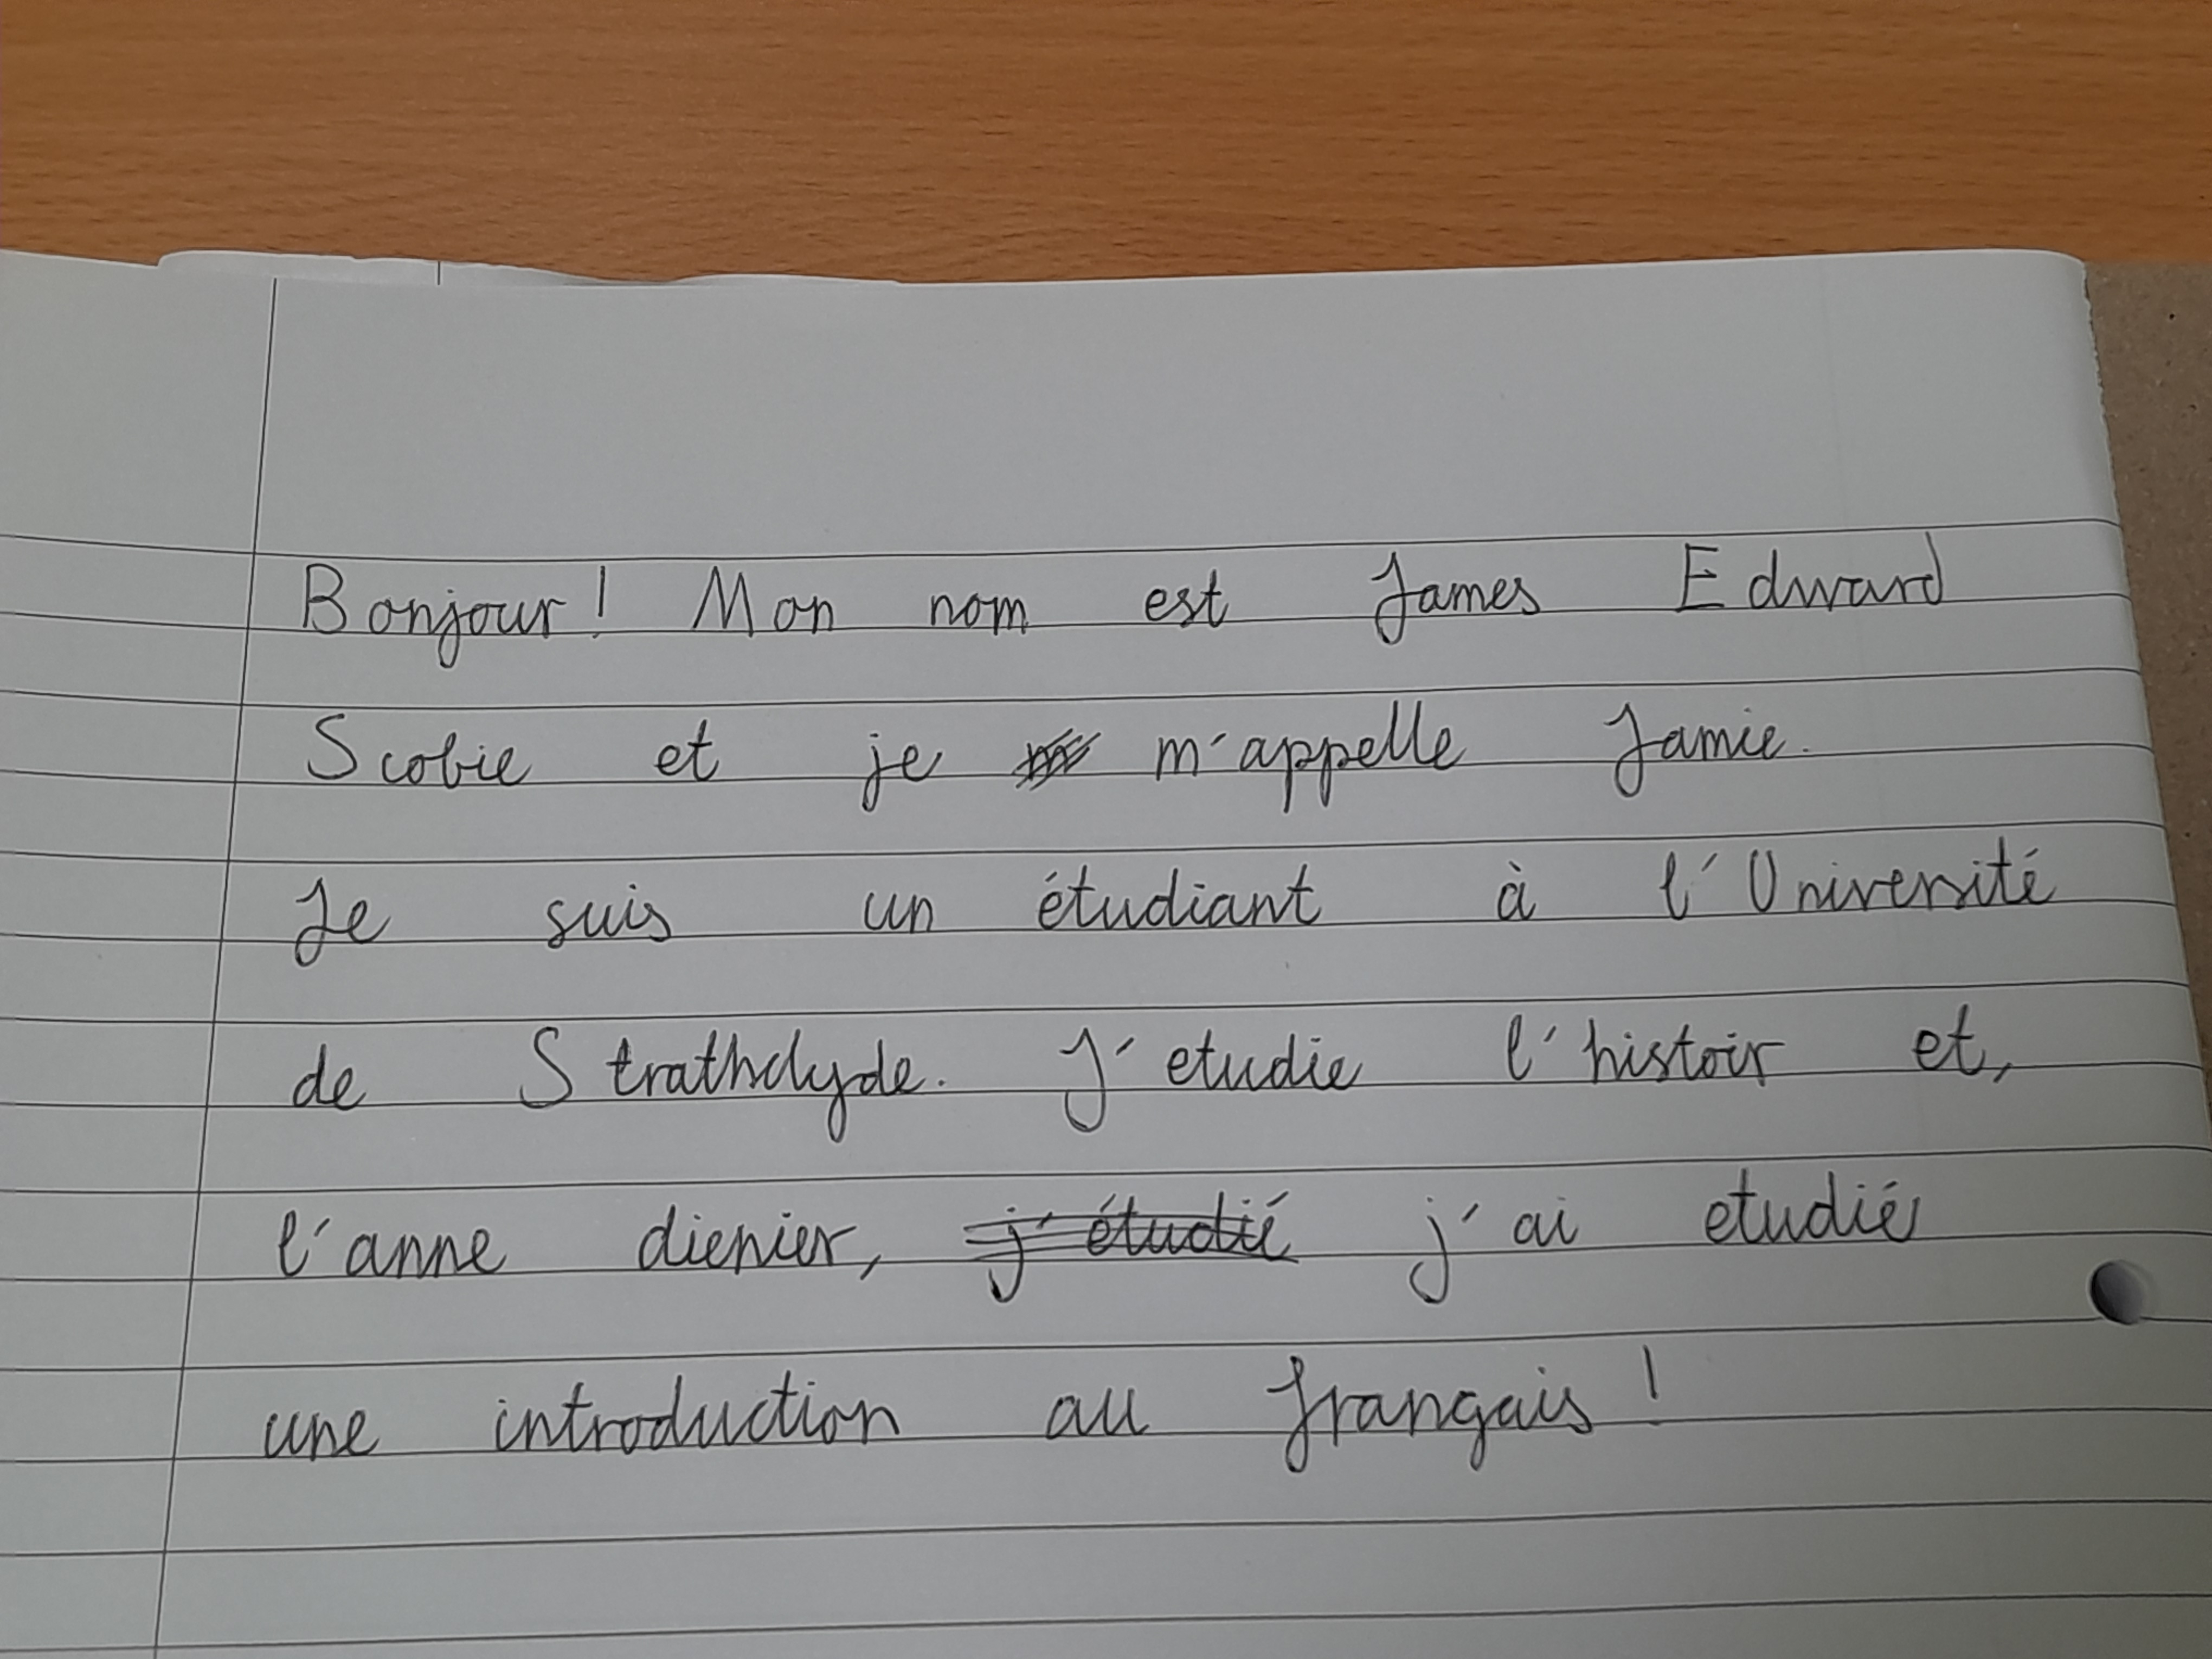 Bonjour! Mon nom est James Edward
Scobie et je m'appelle Jamie.
Je suis un étudiant à l'Université
de Strathclyde. J'etudie l'histoir et,
l'anne dienier, j'étudié j'ai etudié
une introduction au français!